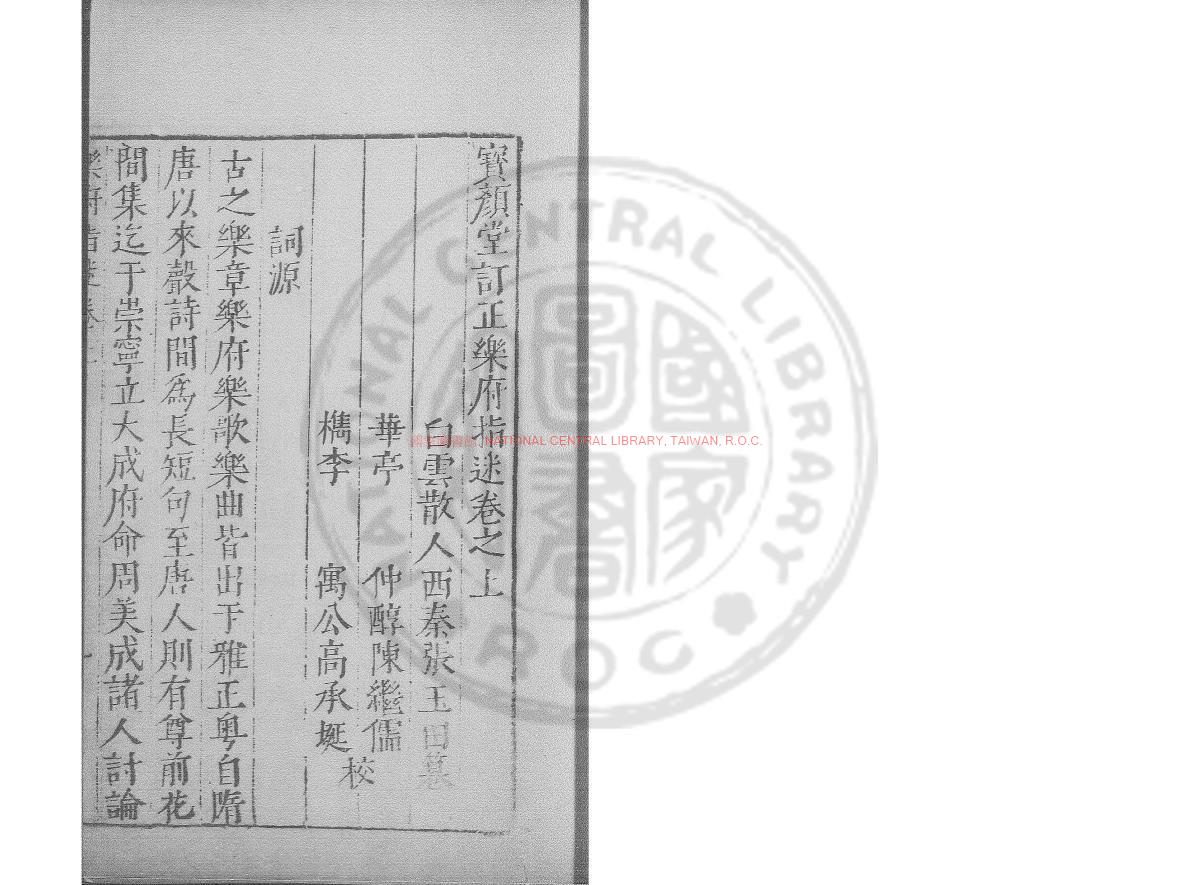 寶顏堂訂正樂府指迷卷之上
白雲散人西秦張玉田
華亭 仲醇陳繼儒
檇李 寓公高承埏 校
詞源
古之樂章樂府樂歌樂曲皆出于雅正粤自隋
唐以來聲詩間爲長短句至唐人則有尊前花
間集迄于崇寧立大成府命周美成諸人討論
樂府指迷卷上
NATIONAL CENTRAL LIBRARY, TAIWAN, R.O.C.
NATIONAL CENTRAL LIBRARY
R.O.C